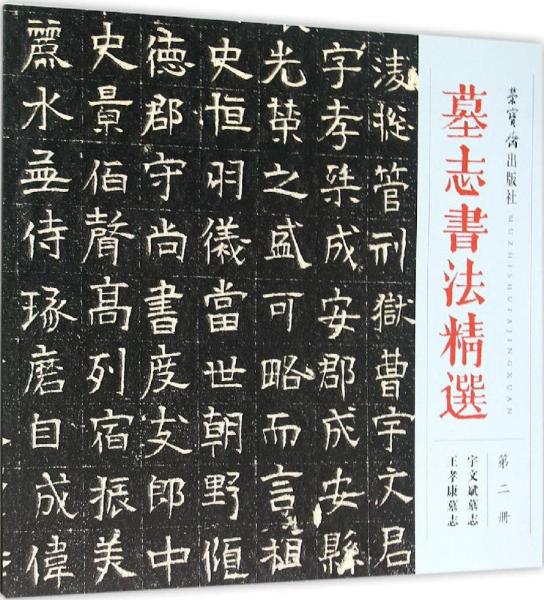 榮寶齋出版社
MUZHISHUFAJINGXUAN
墓志書法精選
第二册
宇文斌墓志
王孝康墓志
管刑獄曹宇文君
字孝成安郡成安縣
光榮之盛可略而言祖
史恒羽儀當世朝野傾
德郡守尚書度支郎中
史景伯聲高列宿振美
麗水侍琢磨自成偉